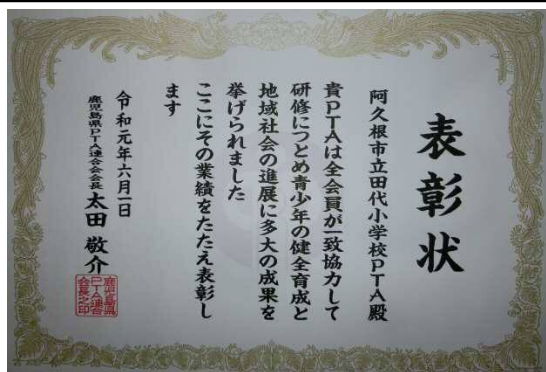 表彰状
阿久根市立田代小学校PTA殿
貴PTAは全会員が一致協力して
研修につとめ青少年の健全育成と
地域社会の進展に多大の成果を
挙げられました
ここにその業績をたたえ表彰し
ます
令和元年六月一日
鹿児島県PTA連合会会長 太田 敬介
鹿児島県
PTA連合会
会長之印